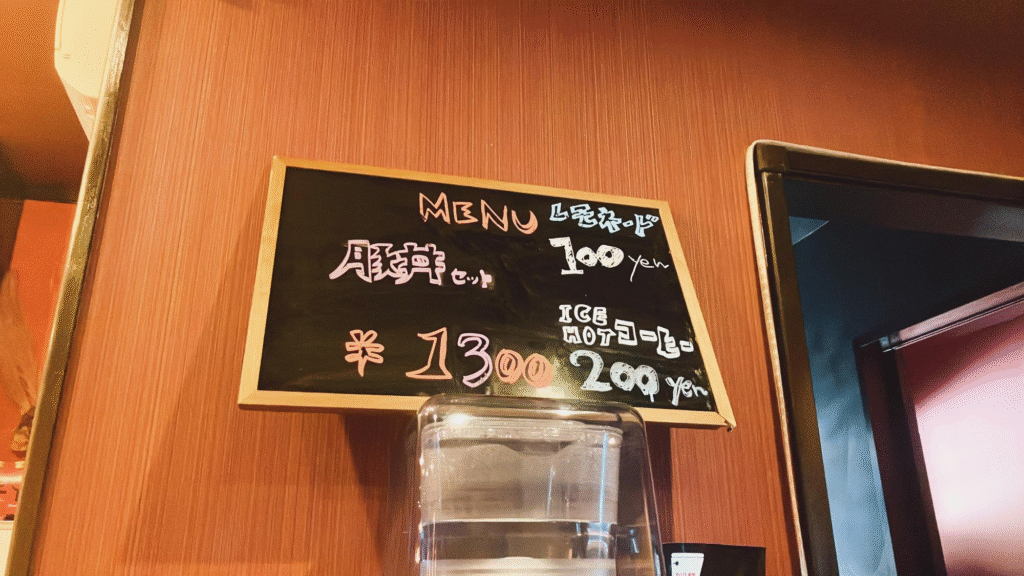 MENU
豚丼セット
¥1300
レモネード
100 yen
ICE
HOTコーヒー
200 yen